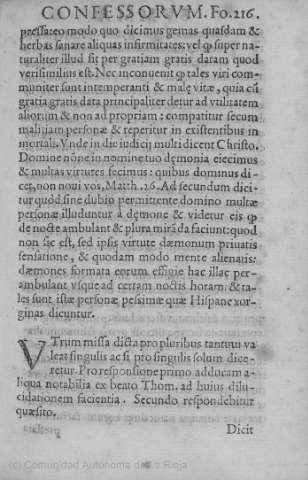 CONFESSORVM. Fo. 216.
pressa: eo modo quo dicimus gemas quasdam &
herbas sanare aliquas infirmitates: vel ꝙ super na-
turaliter illud sit per gratiam gratis datam quod
verisimilius est. Nec inconuenit ꝙ tales viri com-
muniter sunt intemperanti & malę vitæ, quia cū
gratia gratis data principaliter detur ad vtilitatem
aliorum & non ad propriam: compatitur secum
malitiam personæ & reperitur in existentibus in
mortali. Vnde in die iudicij multi dicent Christo.
Domine nōne in nomine tuo dęmonia eiecimus
& multas virtutes fecimus: quibus dominus di-
cet, non noui vos, Matth. 26. Ad secundum dici-
tur quod sine dubio permittente domino multæ
personæ illuduntur a dęmone & videtur eis ꝙ
de nocte ambulant & plura mirāda faciunt: quod
non sic est, sed ipsis virtute dæmonum priuatis
sensatione, & quodam modo mente alienatis:
dæmones formata eorum effigie hac illac per-
ambulant vsque ad certam noctis horam: & ta-
les sunt istæ personæ pessimæ quæ Hispane xor-
ginas dicuntur.
VTrum missa dicta pro pluribus tantum va
leat singulis ac si pro singulis solum dice-
retur. Pro responsione primo adducam a-
liqua notabilia ex beato Thom. ad huius dilu-
cidationem facientia. Secundo respondebitur
quæsito.
Dicit
(c) Comunidad Autónoma de La Rioja